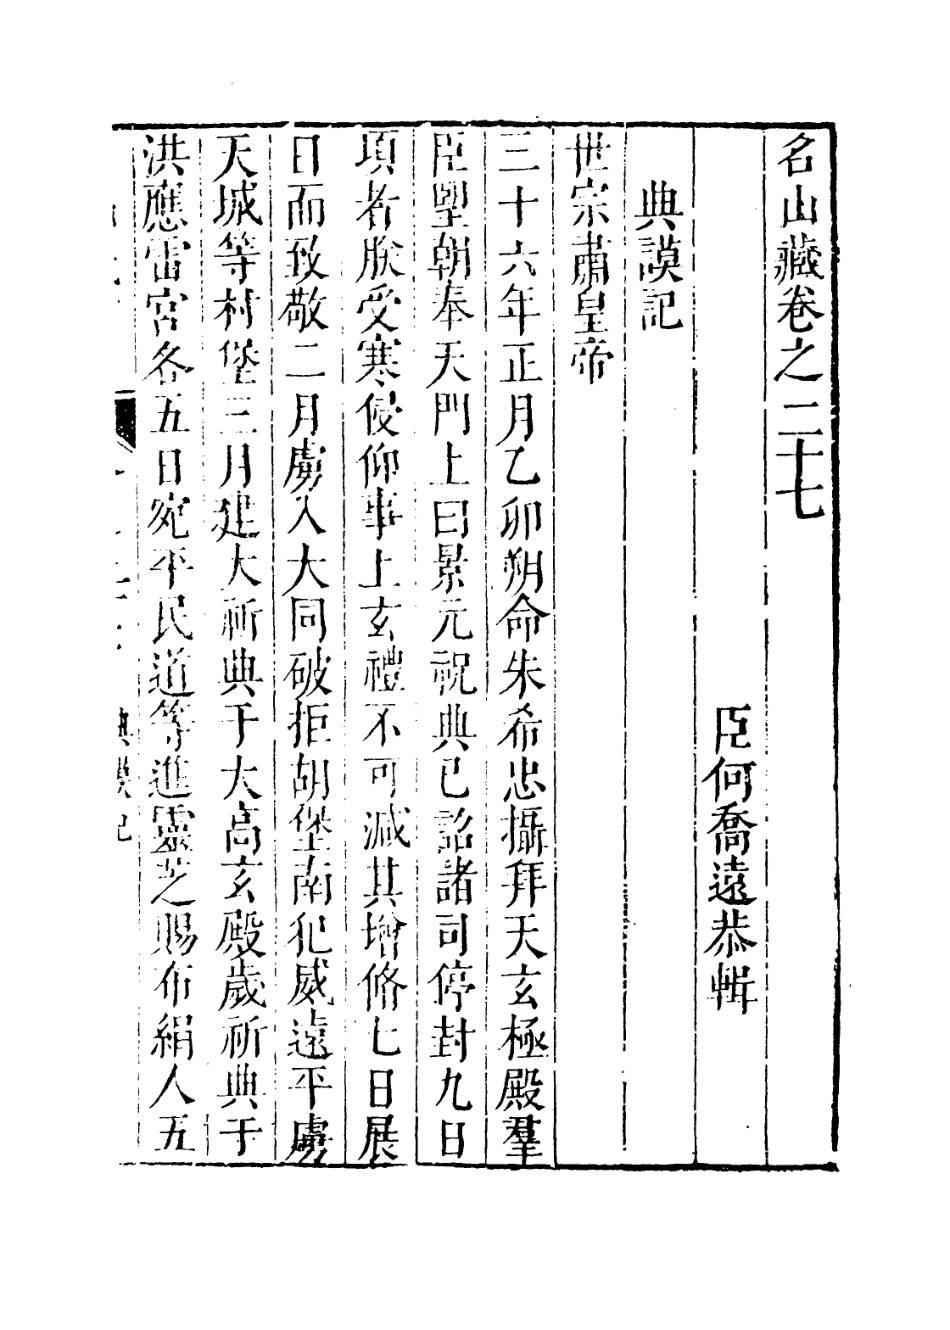 名山藏卷之二十七
臣何喬遠恭輯
典謨記
世宗肅皇帝
三十六年正月乙卯朔命朱希忠攝拜天玄極殿羣
臣望朝奉天門上曰景元祝典已詔諸司停封九日
項者朕受寒侵仰事上玄禮不可減其增脩七日展
日而致敬二月虜入大同破拒胡堡南犯威遠平虜
天城等村堡三月建大祈典于大高玄殿歲祈典于
洪應雷宮各五日宛平民道等進靈芝賜布絹人五
典謨記